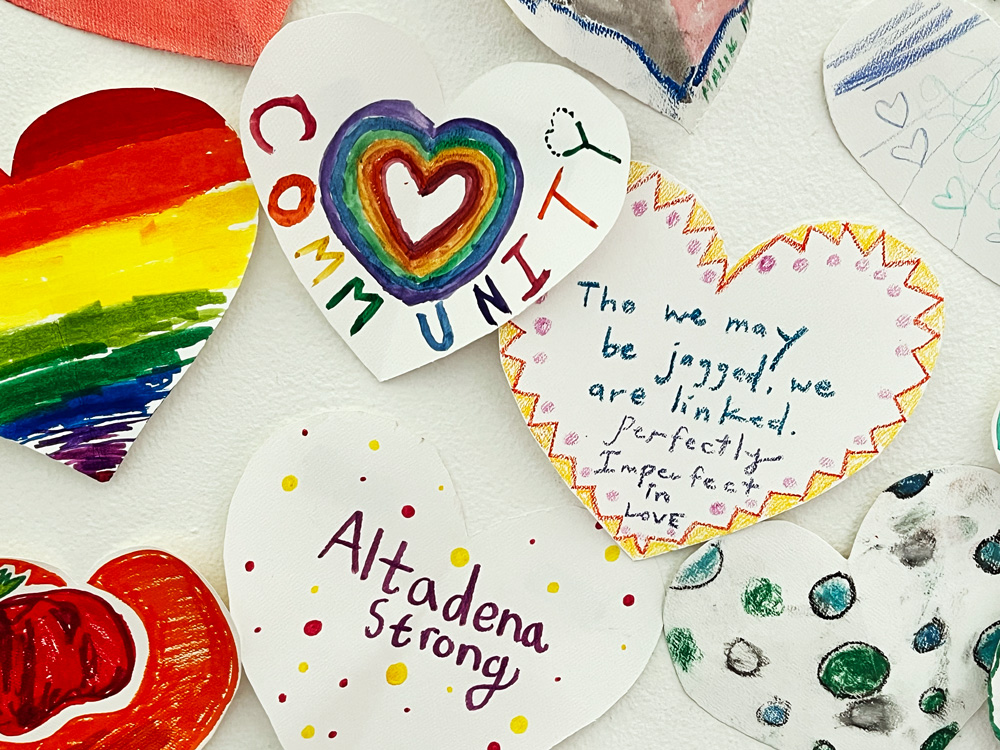 COMMUNITY
Tho we may
be jagged, we
are linked.
perfectly
Imperfect
in
LOVE
Altadena
Strong